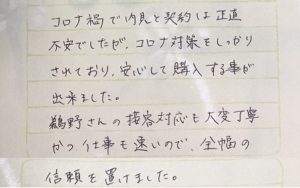 コロナ禍で内見と契約は正直
不安でしたが、コロナ対策をしっかり
されており、安心して購入する事が
出来ました。
鵜野さんの接客対応も大変丁寧
かつ仕事も速いので、全幅の
信頼を置けました。